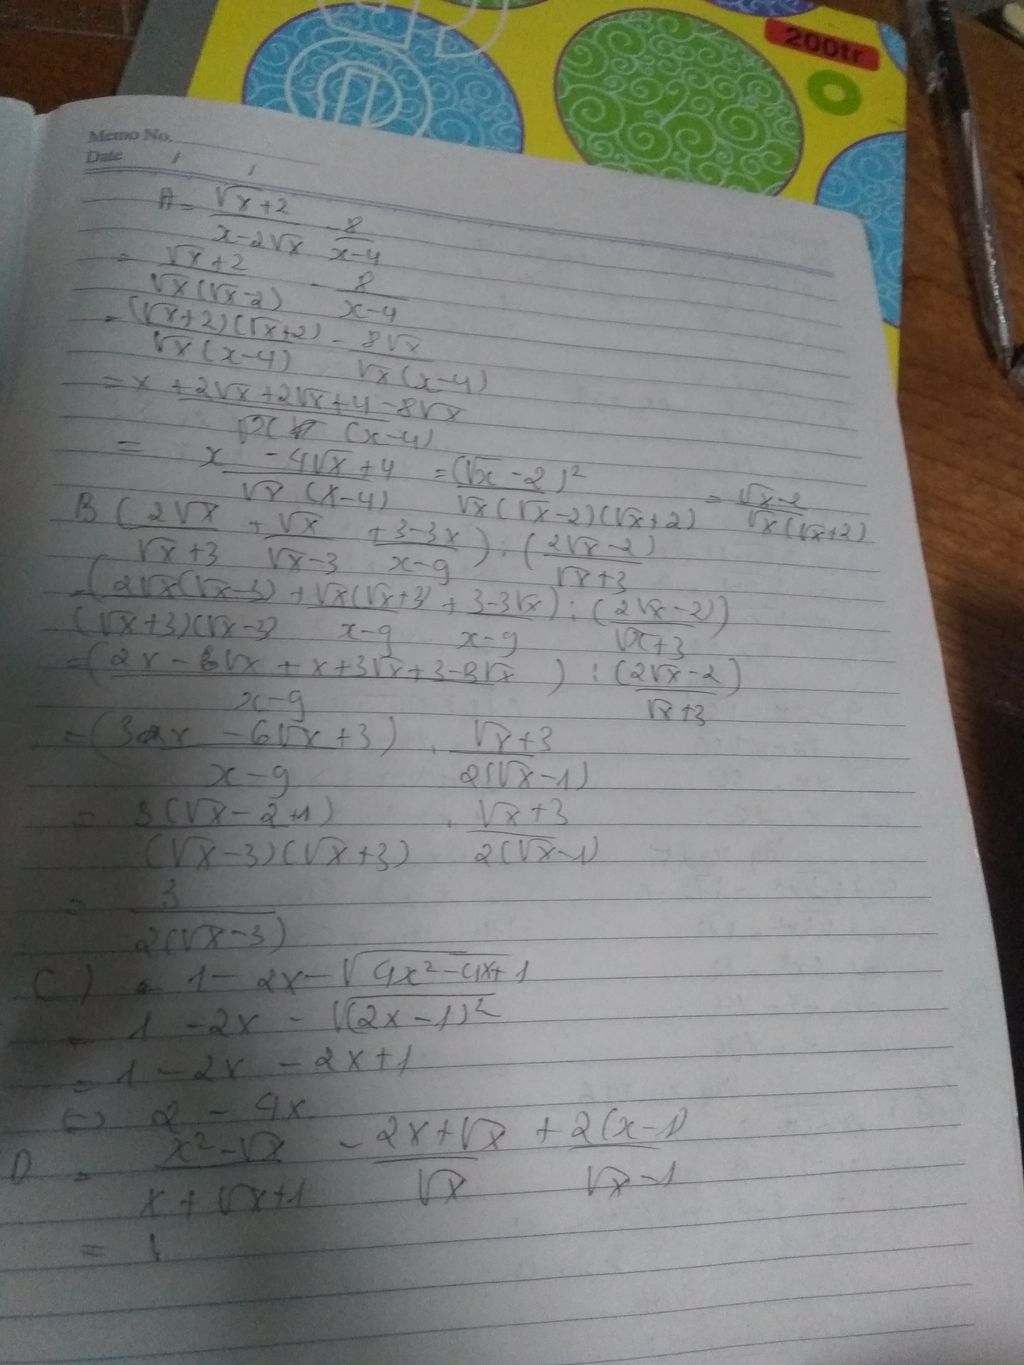 200tr
Memo No.
Date / /
A = (√x+2)/(x-2√x) - 8/(x-4)
= (√x+2)/(√x(√x-2)) - 8/(x-4)
= (√x+2)(√x+2)/(√x(x-4)) - 8√x/(√x(x-4))
= (x+2√x+2√x+4-8√x)/(√x(x-4))
= (x-4√x+4)/(√x(x-4)) = (√x-2)²/(√x(√x-2)(√x+2)) = (√x-2)/(√x(√x+2))
B (2√x/(√x+3) + √x/(√x-3) + (3-3x)/(x-9)) : ((2√x-2)/(√x+3))
= (2√x(√x-3)/((√x+3)(√x-3)) + √x(√x+3)/(x-9) + (3-3√x)/(x-9)) : ((2√x-2)/(√x+3))
= ((2x-6√x+x+3√x+3-3√x)/(x-9)) : ((2√x-2)/(√x+3))
= (3x-6√x+3)/(x-9) . (√x+3)/(2(√x-1))
= 3(√x-2+1)/((√x-3)(√x+3)) . (√x+3)/(2(√x-1))
= 3/(2(√x-3))
C) = 1-2x-√(4x²-4x+1)
= 1-2x-√((2x-1)²)
= 1-2x-2x+1
(=) 2-4x
D = (x²-√x)/(x+√x+1) - (2x+√x)/√x + 2(x-1)/(√x-1)
=